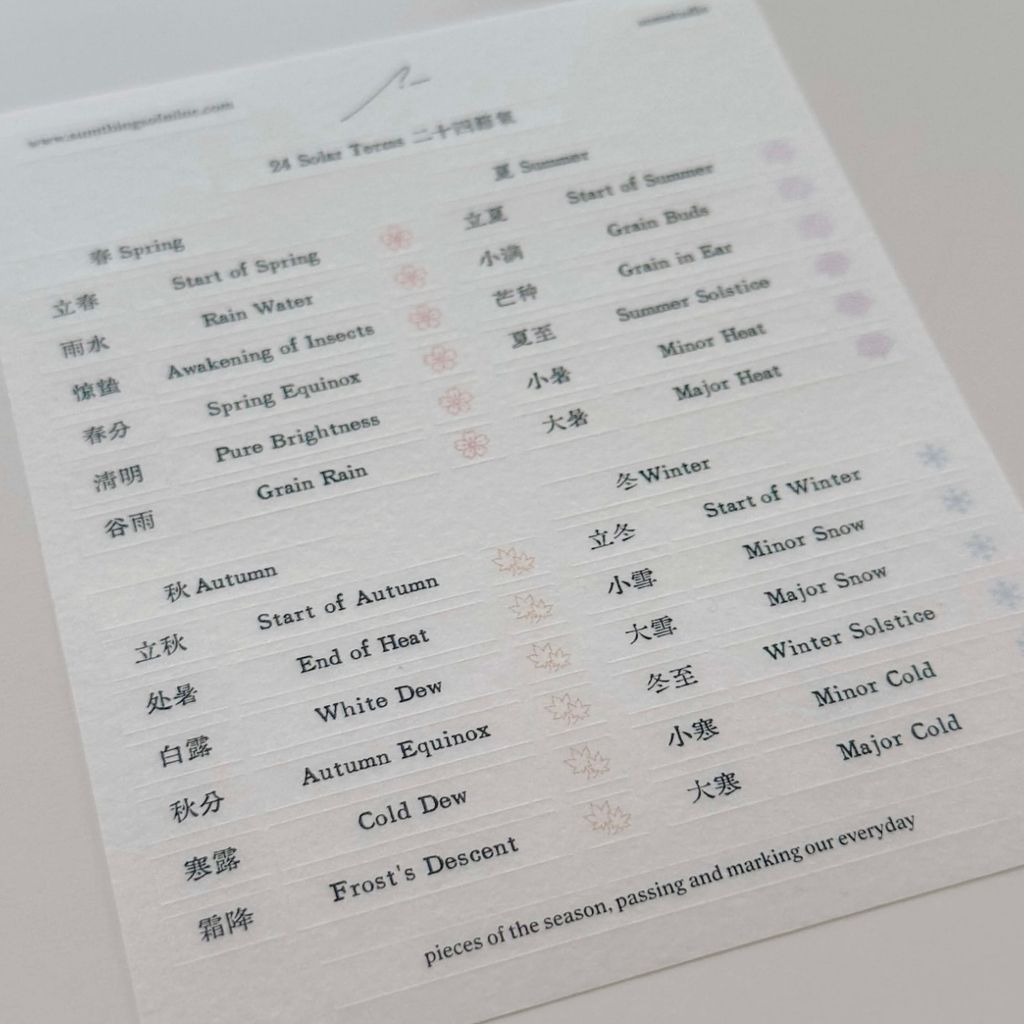 24 Solar Terms 二十四節氣
春 Spring
立春 Start of Spring
雨水 Rain Water
惊蛰 Awakening of Insects
春分 Spring Equinox
清明 Pure Brightness
谷雨 Grain Rain
夏 Summer
立夏 Start of Summer
小满 Grain Buds
芒种 Grain in Ear
夏至 Summer Solstice
小暑 Minor Heat
大暑 Major Heat
秋 Autumn
立秋 Start of Autumn
处暑 End of Heat
白露 White Dew
秋分 Autumn Equinox
寒露 Cold Dew
霜降 Frost's Descent
冬 Winter
立冬 Start of Winter
小雪 Minor Snow
大雪 Major Snow
冬至 Winter Solstice
小寒 Minor Cold
大寒 Major Cold
pieces of the season, passing and marking our everyday